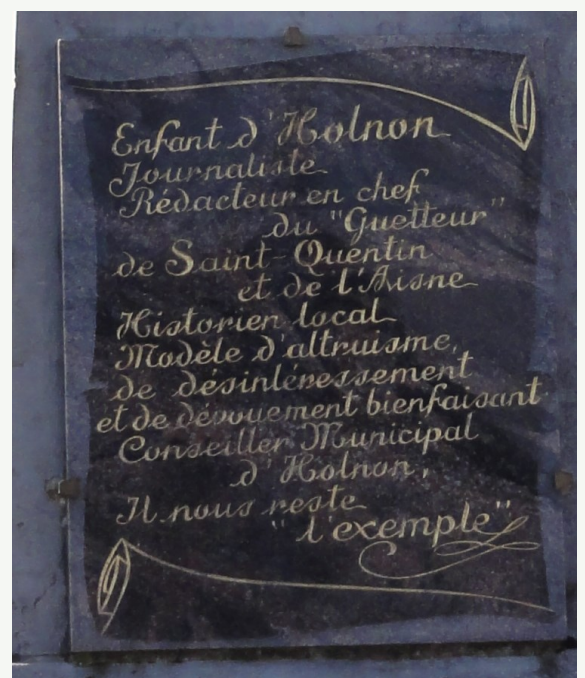 Enfant d'Holnon
Journaliste
Rédacteur en chef
du "Guetteur"
de Saint-Quentin
et de l'Aisne
Historien local
Modèle d'altruisme,
de désintéressement
et de dévouement bienfaisant
Conseiller Municipal
d'Holnon,
Il nous reste
"l'exemple"